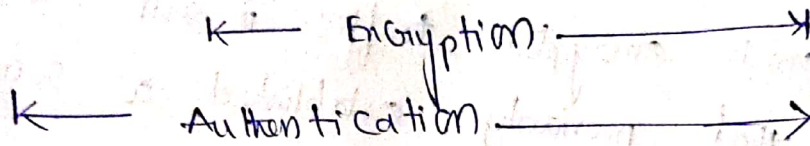 Encryption
Authentication